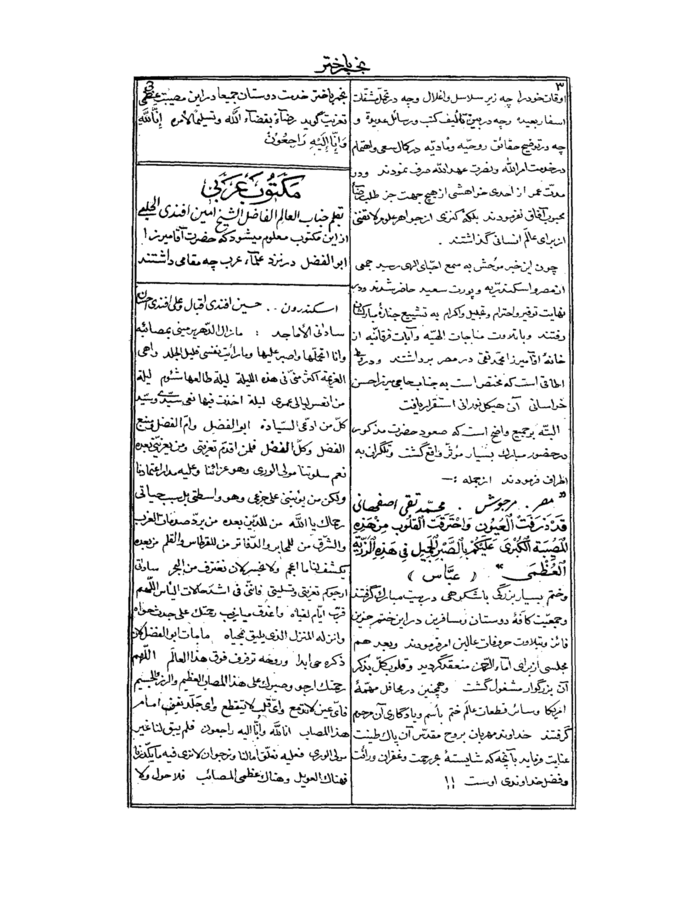 نجم باختر
۳
اوقات خود را چه زیر سلاسل و اغلال و چه در تحمل مشقات
اسفار بعیده و چه در بین تألیف کتب و رسائل عدیده و
چه در توضیح حقائق روحیه و مادیه در کمال سعی و اهتمام
در خدمت امرالله و نصرت عهدالله صرف نمودند و در
مدت عمر از احدی خواهشی از هیچ جهت جز طلب رضا
محبوب آفاق نفرمودند بلکه کنزی از جواهر علوم لا تفنی
از برای عالم انسانی گذاشتند .
چون این خبر موحش به سمع احبای الهی رسید جمعی
از مصر و اسکندریه و پورت سعید حاضر شدند و در
نهایت توقیر و احترام و تجلیل و اکرام به تشییع جنازه مبارکشان
رفتند و با تلاوت مناجات الهیه و آیات فرقانیه از
خانه آقا میرزا محمد تقی در مصر برداشتند و در
اطاقی است که مختص است به جناب حاجی میرزا حسن
خراسانی آن هیکل نورانی استقرار یافت
البته بر جمیع واضح است که صعود حضرت مذکور
در حضور مبارک بسیار مؤثر واقع گشت و تلگراف به
اطراف فرمودند از جمله :—
" مصر . مرجوش . محمد تقی اصفهانی
قد ذرفت العیون و احترقت القلوب من هذه
المصیبة الکبری علیکم بالصبر الجمیل فی هذه الرزیة
العظمی " ( عباس )
و ختم بسیار بزرگی با شکوهی در بیت مبارک گرفتند
و جمعیت کافه دوستان و مسافرین در این ختم حزین
فائز و بتلاوت حروفات عالین امر فرمودند و بعد هم
مجلسی از برای اماء الرحمن منعقد گردید و قلوب کل بذکر
آن بزرگوار مشغول گشت و همچنین در محافل مهمه
امریکا و سائر قطعات عالم ختم باسم و یادگاری آن مرحوم
گرفتند خداوند مهربان بروح مقدس آن پاک طینت
عنایت فرماید بآنچه که شایسته رحمت و غفران و رأفت
و فضل خداوندی اوست !!
نجم باختر خدمت دوستان جمیعا در این مصیبت عظمی
تعزیت گوید رضاء بقضاء الله و تسلیما لامره انا لله
و انا الیه راجعون
مکتوب عربی
بقلم جناب العالم الفاضل الشیخ امین افندی الحلبی
از این مکتوب معلوم میشود که حضرت آقا میرزا
ابوالفضل در نزد علماء عرب چه مقامی داشتند
اسکندرون . . حسین افندی اقبال و علی افندی
ساداتی الأماجد : مازال الدهر یرمینی بمصائبه
وانا اتحملها واصبر علیها وما رأیت نفسی قلیل الجلد واهی
العزیمة اکثر منی فی هذه اللیلة لیلة طالعها شئوم لیلة
من انحس لیالی عمری لیلة اخذت فیها نعی سیدی وسید
کل من ادعی السیادة ابو الفضل وام الفضل و منبع
الفضل وکل الفضل فلمن اقدم تعزیتی ومن یعزینی بعده
نعم سلوتنا مولی الوری وهو عزائنا وعلیه مدار اعتمادنا
ولکن من یؤنسنی علی جزعی وهو واسطتی بل سبب حیاتی
رحماک یا الله من للدین بعده من یرد صدمات الغرب
والشرق من للمحابر والدفاتر من للقرطاس والقلم من بعده
یکشف لنا ما اعجم
ارجوکم تعزیتی وتسلیتی فانی فی اشد حالات الیأس اللهم
قرب ایام لقیاه واغدق میازیب رحمتک علی جدث حواه
وانزله المنزل الذی یلیق بمحیاه ما مات ابو الفضل لکن
ذکره حی ابدا وروحه ترفرف فوق هذا العالم اللهم
رحمتک ارجو وصبرک علی هذا المصاب العظیم والرزء الجسیم
فای عین لا تدمع وای قلب لا یتقطع وای جلد یقوی امام
هذا المصاب انا لله وانا الیه راجعون فلم یبق لنا غیر
مولی الوری فعلیه نعلق آمالنا ونرجو ان لا نری فیه ما یکدرنا
فهناک العویل وهناک عظمی المصائب فلا حول ولا